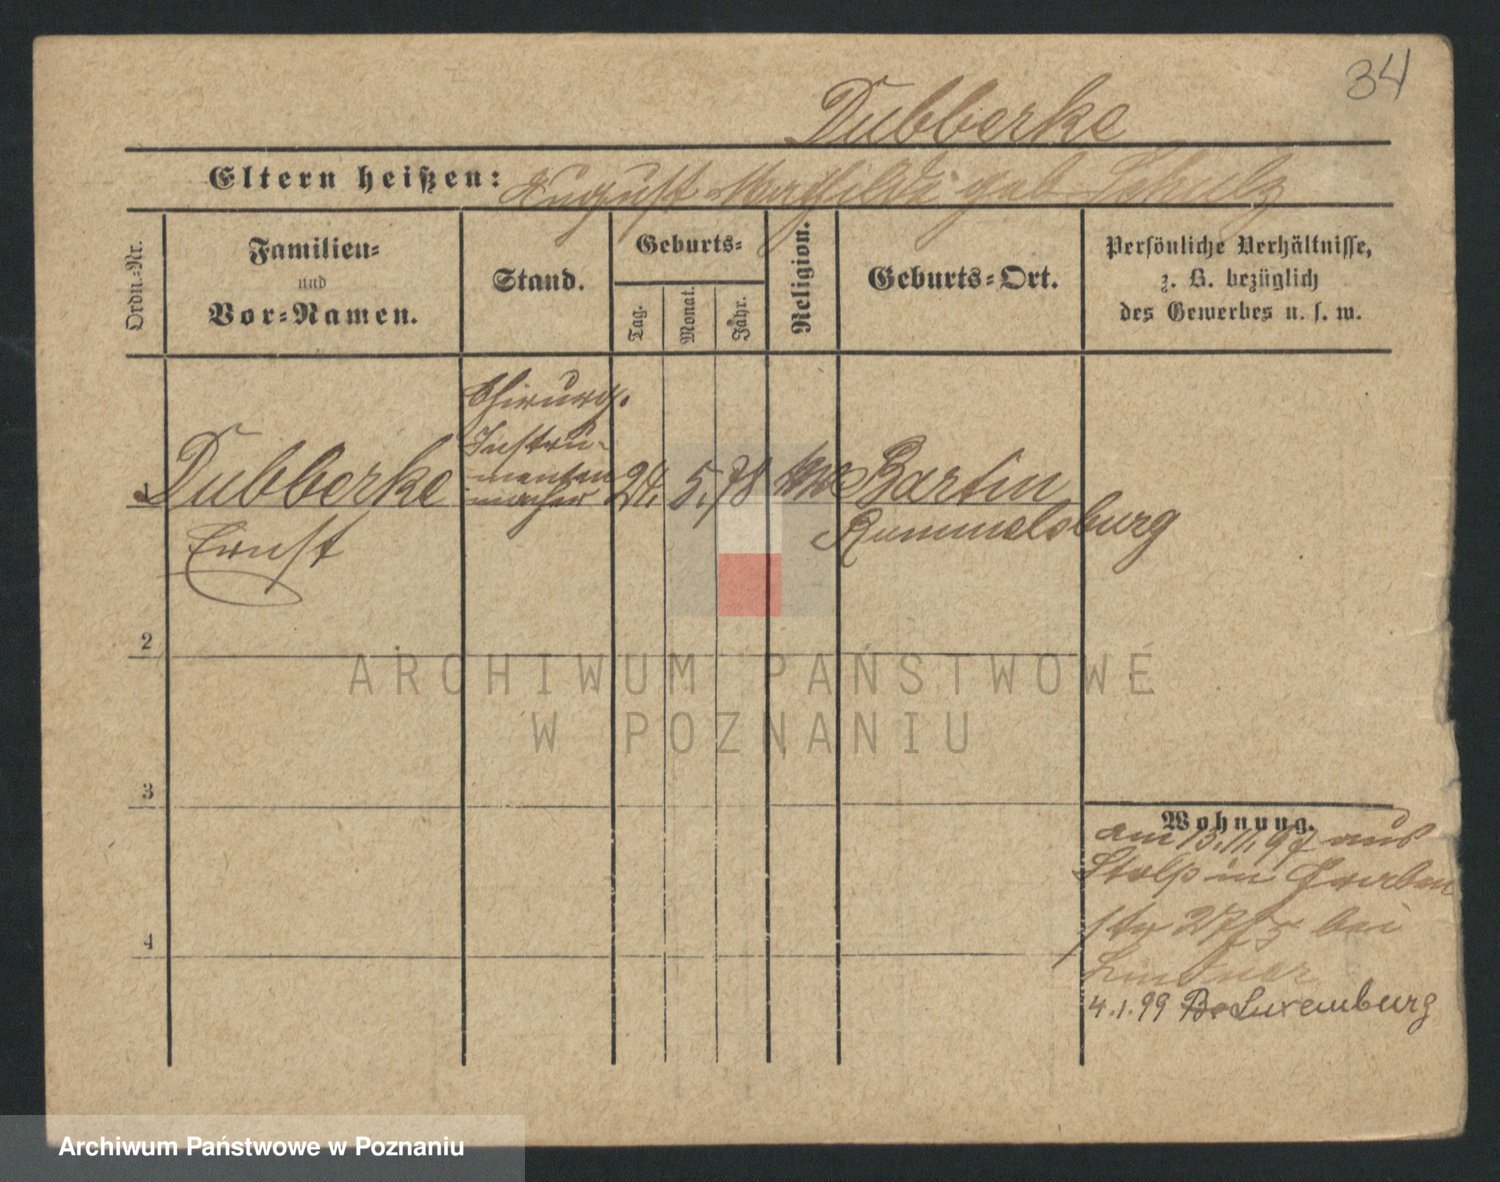 34
Dubberke
Eltern heißen: August Mathilde geb Schulz
Ordn.-Nr.
Familien-
und
Vor-Namen.
Stand.
Geburts-
Tag.
Monat.
Jahr.
Religion.
Geburts-Ort.
Persönliche Verhältnisse,
z. B. bezüglich
des Gewerbes u. s. w.
Chirurg.
Instru-
menten
macher
1 Dubberke 24. 5. 78 Bartin
Ernst Rummelsburg
2
3
4
Wohnung.
am 13.11.97 aus
Stolp in Graben
str bei
Lindner
4.1.99 Luxemburg
ARCHIWUM PAŃSTWOWE
W POZNANIU
Archiwum Państwowe w Poznaniu